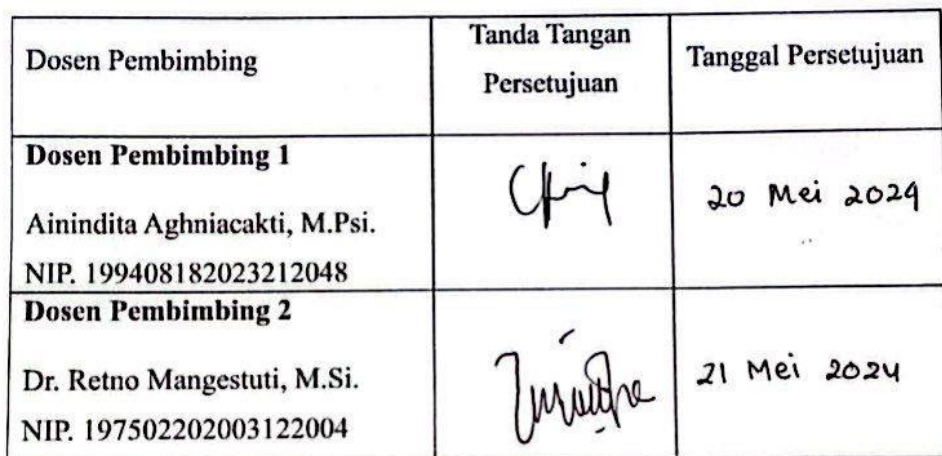 Dosen Pembimbing
Tanda Tangan
Persetujuan
Tanggal Persetujuan
Dosen Pembimbing 1
Ainindita Aghniacakti, M.Psi.
NIP. 199408182023212048
20 Mei 2024
Dosen Pembimbing 2
Dr. Retno Mangestuti, M.Si.
NIP. 197502202003122004
21 Mei 2024